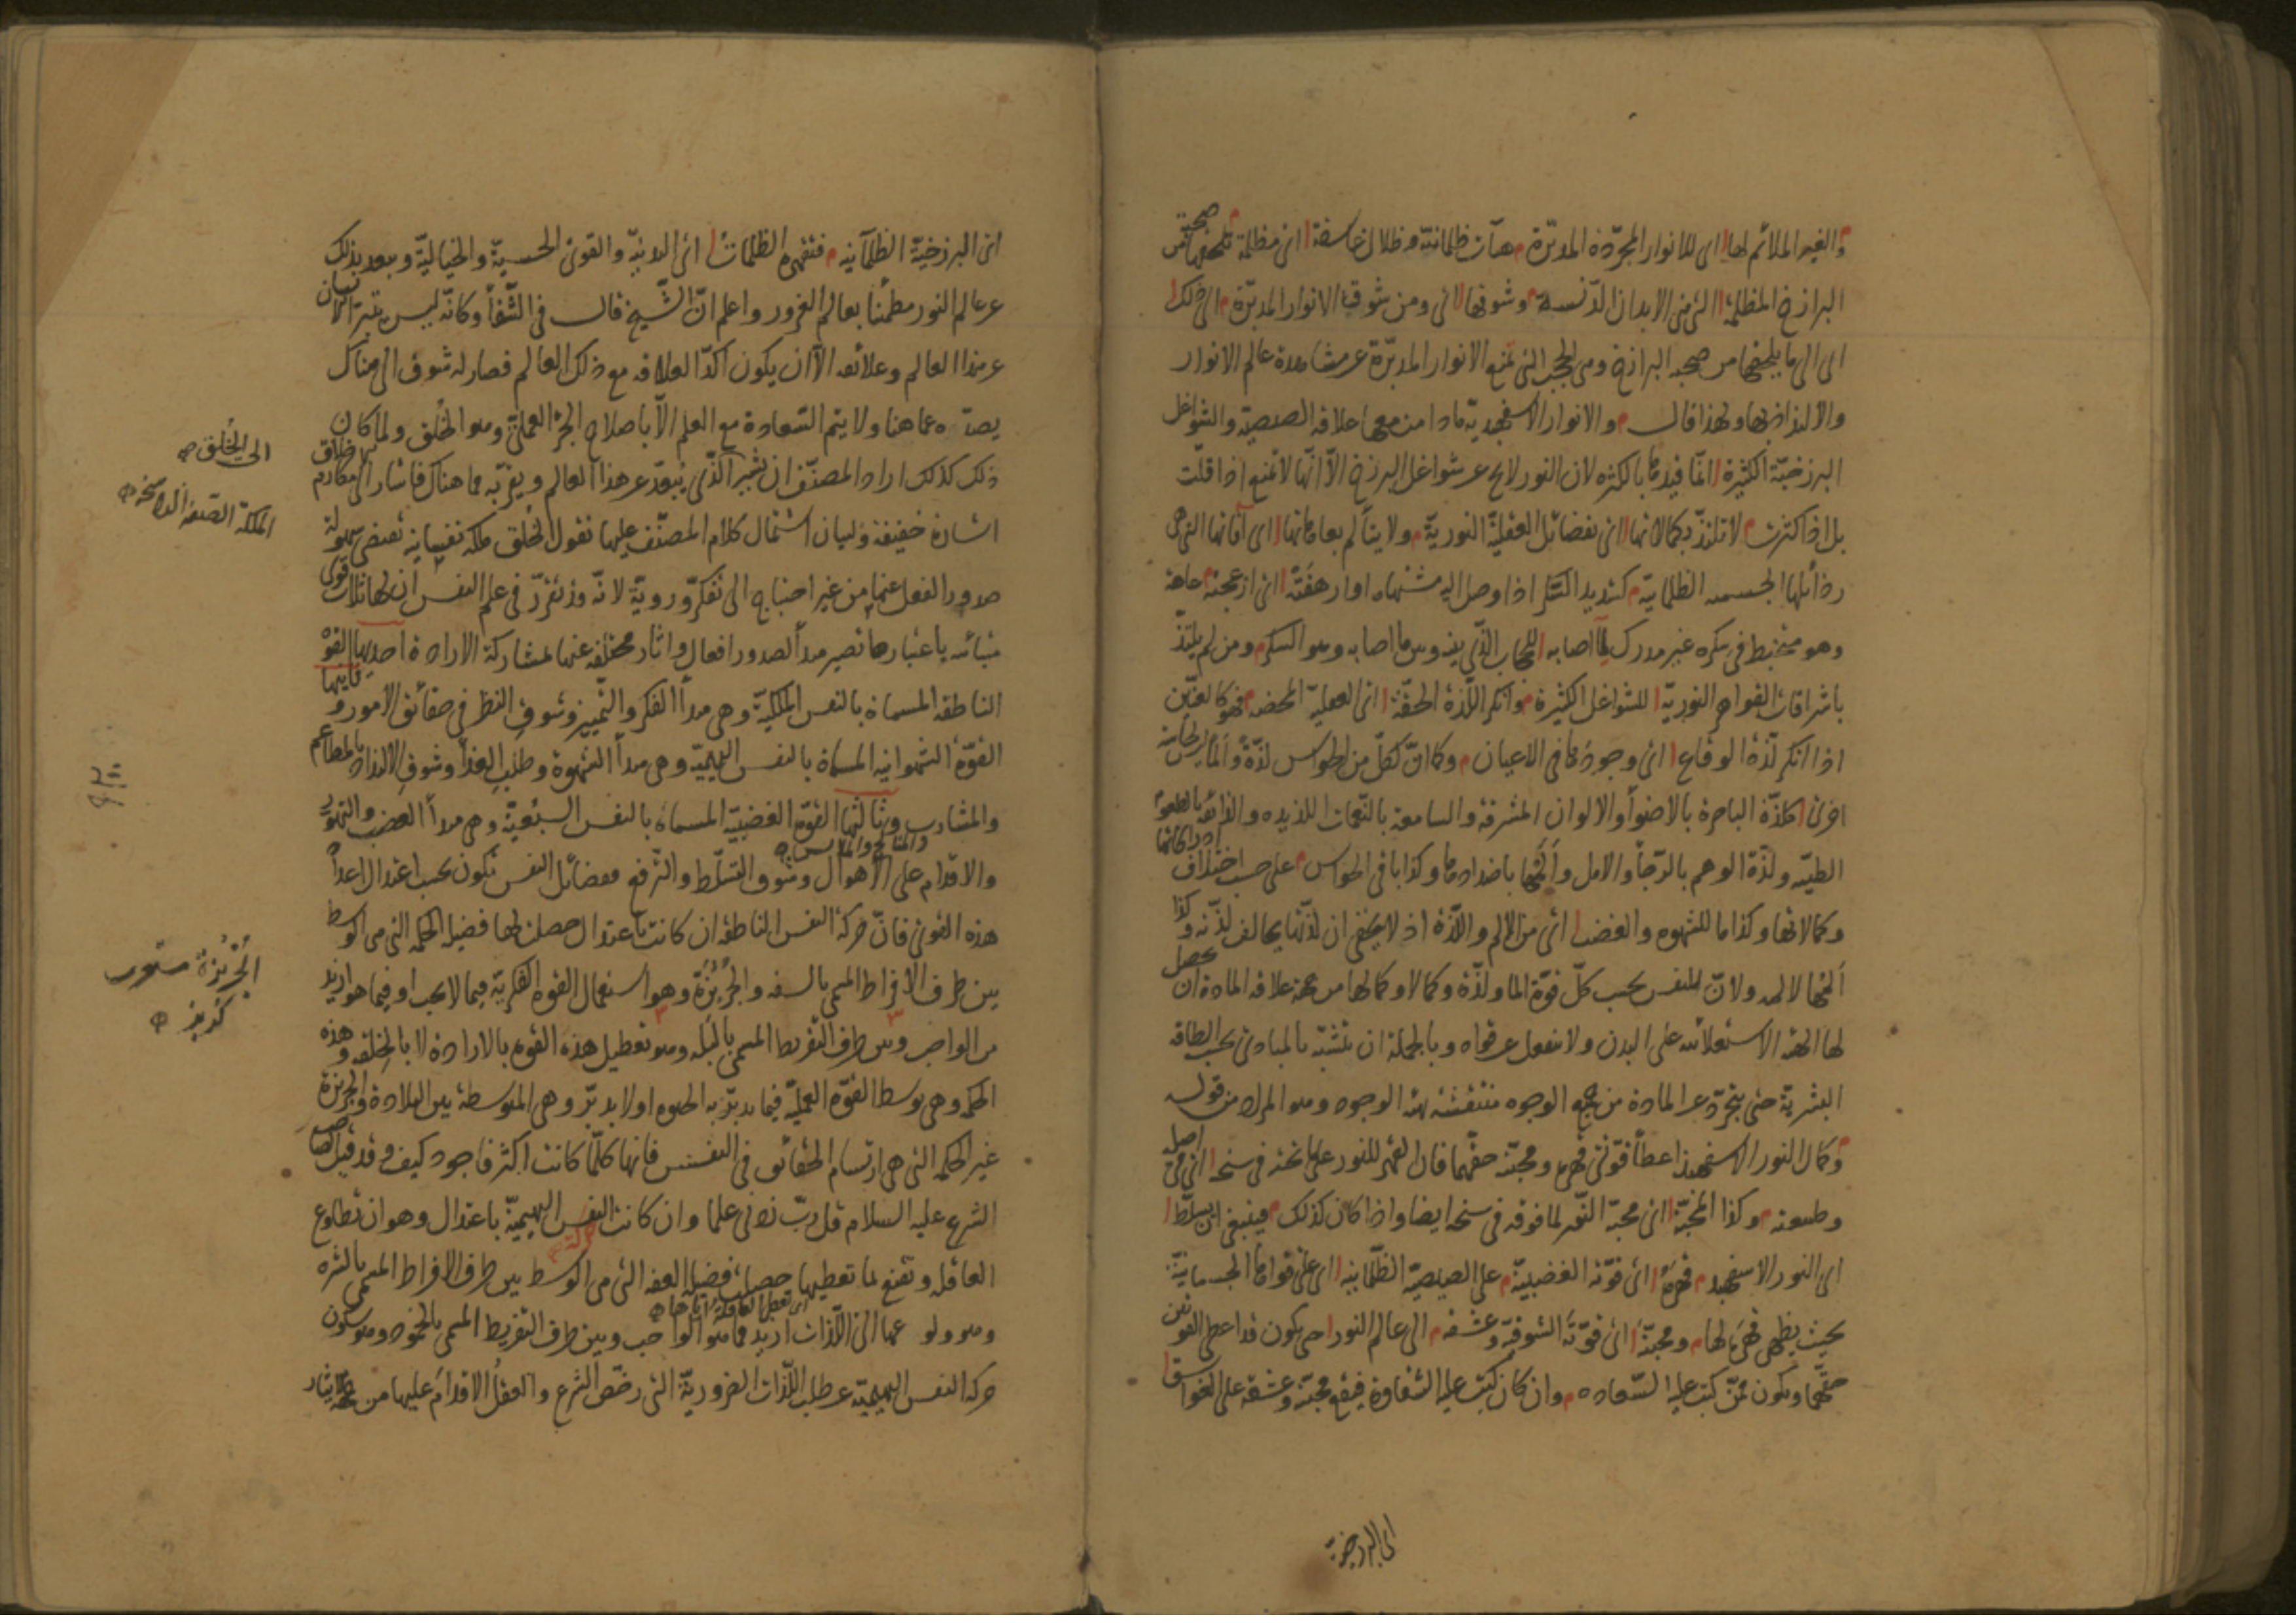 والغير الملائم لها اى للانوار المجردة المدبّرة هيآت ظلمانيّة وظلال غاسقة اى مظلمة تلحقها من صحبة
البرازخ المظلمة اى من الابدان الدنسة وشوقها اى ومن شوق الانوار المدبّرة الى ذلك
اى الى ما يلحقها من صحبة البرازخ وهى الحجب التى تمنع الانوار المدبّرة عن مشاهدة عالم الانوار
والالتذاذ بها ولهذا قال والانوار الاسفهبدية ما دامت معها علاقة الصيصية والشواغل
البرزخيّة الكثيرة انّما قيدها بالكثرة لان النور لا يخ عن شواغل البرزخ الّا انّها لا تمنع اذا قلّت
بل اذا كثرت لا تلتذّ بكمالاتها اى بفضائل العقليّة النوريّة ولا يتألم بعاهاتها اى آفاتها التى هى
رذائلها الجسمية الظلمانيّة كشديد السكر اذا وصل اليه مشتهاه او ارهقتة اى ازعجته عاهة
وهو متخبط فى سكره غير مدرك لما اصابه للحجاب الذى بينه وبين ما اصابه وهو السكر ومن لم يلتذّ
باشراقات القواهر النوريّة للشواغل الكثيرة وانكر اللّذة الحقّة اى العقلية المحضة فهو كالعنّين
اذا انكر لذّة الوقاع اى وجودها فى الاعيان وكما انّ لكلّ من الحواس لذّة والماً ليس لحاسة
اخرى كلذّة الباصرة بالاضوآء والالوان المشرقة والسامعة بالنّغمات اللذيذه والذائقة بالطعوم
الطيّبه ولذّة الوهم بالرّجآء والامل وألمها باضدادها وكذا باقى الحواس على حسب اختلاف ادراكاتها
وكمالاتها وكذا ما للشهوه والغضب اى من الالم واللّذة اذ لا يخفى ان لذّتها يخالف لذّته وكذا
ألمها لالمه ولانّ للنفس بحسب كلّ قوّة الما ولذّة وكمالا وكمالها من جهة علاقة المادة ان يحصل
لها الهيئة الاستعلائيه على البدن ولا ينفعل عن قواه وبالجملة ان يتشبّه بالمبادئ بحسب الطاقة
البشرية حتى يتجرّد عن المادة من جميع الوجوه منتقشة بهيئة الوجود وهو المراد من قوله
وكمال النور الاسفهبذ اعطآء قوّتى قهره ومحبّته حقّهما فان القهر للنور على ما تحته فى سنخه اى فى اصل
وطبيعته وكذا المحبّة اى محبّة النّور لما فوقه فى سنخه ايضا واذا كان كذلك فينبغى ان يسلّط
اى النور الاسفهبد قهره اى قوّته الغضبيّة على الصيصيّة الظلمانيّه اى على قواها الجسمانيّة
بحيث يظهر قهره لها ومحبّته اى قوّته الشوقيّه وعشقه الى عالم النور حتى يكون قد اعطى القوّتين
حقّهما ويكون ممّن كتب عليه السّعاده وان كان كتب عليه الشقاوة فيقع محبّته وعشقه على الغواسق
اى البرزخية
اى البرزخيّة الظلمآنيه فتقهره الظلمات اى البدنيّة والقوى الحسيّة والخياليّة ويبعد بذلك
عن عالم النور مطمئنا بعالم الغرور واعلم انّ الشيخ قال فى الشّفآء وكانّه ليس يتبرّأ الانسان
عن هذا العالم وعلائقه الّا ان يكون اكدّ العلاقه مع ذلك العالم فصار له شوق الى هناك
يصدّه عما هنا ولا يتم السّعادة مع العلم الّا باصلاح الجزء العملى وهو الخلق ولما كان
ذلك كذلك اراد المصنّف ان يشير الى الذى يبعّد عن هذا العالم ويقرّبه مما هناك فاشار الى مكارم الاخلاق
اشارة خفيفة ولبيان اشتمال كلام المصنّف عليها نقول الخلق ملكة نفسانيه تقتضى سهولة
صدور الفعل عنها من غير احتياج الى تفكّر ورويّة لانّه قد تقرّر فى علم النفس ان لها ثلاث قوى
متبائنه باعتبارها تصير مبدأ لصدور افعال واثار مختلفه عنها بمشاركة الارادة احديها القوّة
الناطقة المسماة بالنفس الملكيّة وهى مبدأ الفكر والتّمييز وشوق النظر فى حقائق الامور وثانيها
القوّة الشهوانيه المسماة بالنفس البهيميّة وهى مبدأ الشهوة وطلب الغذآء وشوق الالتذاذ بالمطاعم
والمشارب والمناكح والملابس وثالثها القوّة الغضبيّة المسماة بالنفس السبعيّة وهى مبدأ الغضب والتهوّر
والاقدام على الاهوال وشوق التسلّط والترفّع وفضائل النفس تكون بحسب اعتدال اعداد
هذه القوى فانّ حركة النفس الناطقة ان كانت باعتدال حصلت لها فضيلة الحكمة التى هى الوسط
بين طرف الافراط المسمى بالسفه والجربزة وهو استعمال القوة الفكريّة فيما لا يجب او فيما هو ازيد
من الواجب وبين طرف التفريط المسمى بالبله وهو تعطيل هذه القوة بالارادة لا بالخلقة وهذه
الحكمة وهى توسط القوّة العمليّة فيما يدبّر به الحيوة اولا يدبّر وهى المتوسطة بين البلادة والجربزة
غير الحكمة التى هى ارتسام الحقائق فى النفس فانها كلّما كانت اكثر فاجود كيف وقد قيل لصاحب
الشرع عليه السلام قل ربّ زدنى علما وان كانت حركة النفس البهيميّة باعتدال وهو ان تطاوع
العاقلة وتقنع بما تعطيها اى تعطى العاقلة اياها حصلت فضيلة العفة التى هى الوسط بين طرف الافراط المسمى بالشره
وهو ولوعها الى اللّذات ازيد مما هو الواجب وبين طرف التفريط المسمى بالخمود وهو سكون
حركة النفس البهيميّة عن طلب اللّذات الضروريّة التى رخّص الشرع والعقل الاقدام عليها من جهة الايثار
الى الخُلق
الملكة الصفة الراسخة
الجُرْبُزة معرب
كربز